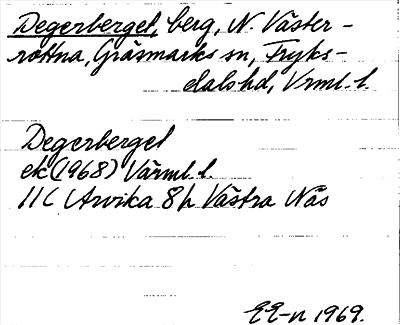 Degerberget, berg, N. Väster-
rottna, Gräsmarks sn, Fryks-
dals hd, Vrml. l.
Degerberget
ek (1968) Värml. l.
11C Arvika 8h Västra Näs
EE-n 1969.